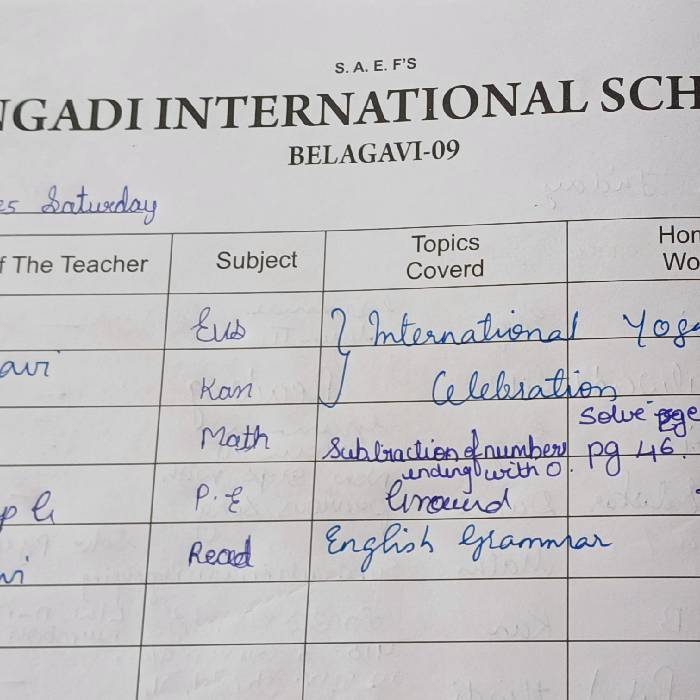 S. A. E. F'S
NGADI INTERNATIONAL SCH
BELAGAVI-09
es Saturday
f The Teacher Subject Topics Coverd Hom Wo
Eus International Yoga
avi Kan Celebration
Math Subtraction of number ending with 0. Solve pge pg 46.
P.E Ground
Read English Grammar